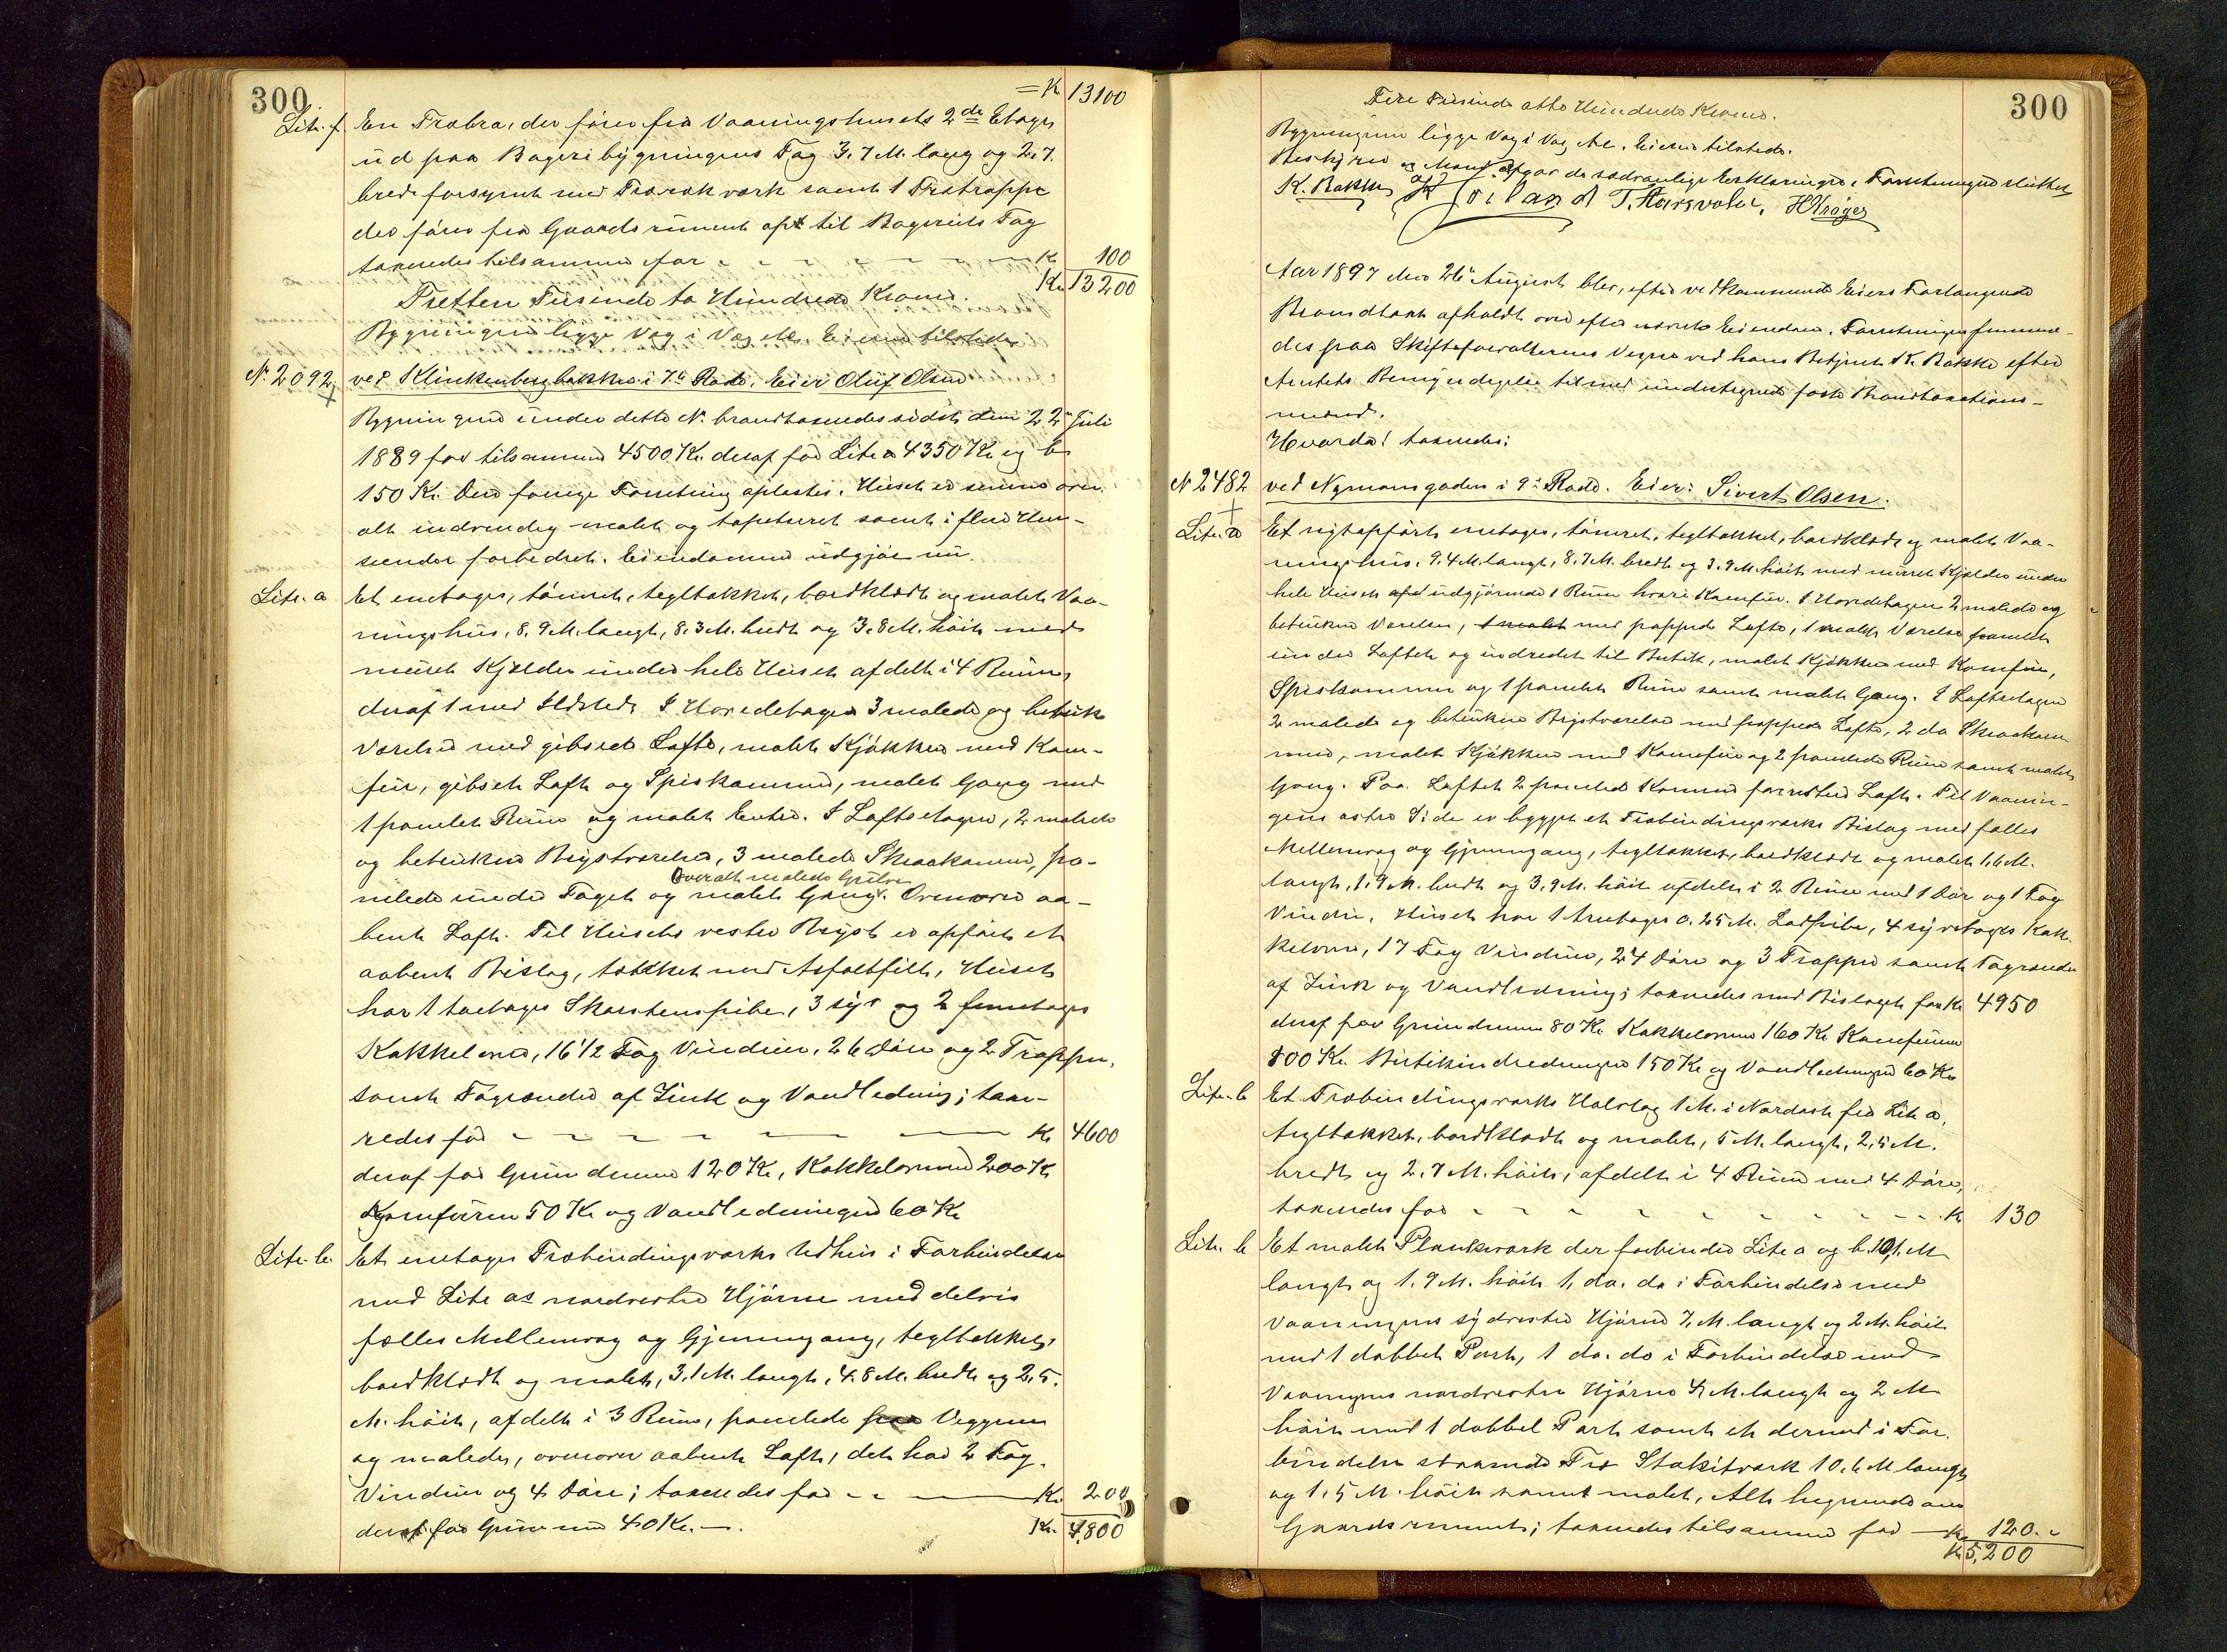 300
= Kr 13100
Litr. f. En Træbro, der fører fra Vaaningshusets 2de Etage
ud paa Bageribygningens Tag 3.7 M. lang og 2.7.
bred forsynet med Trærækværk samt 1 Trætrappe
der fører fra Gaardsrummet op til Bageriets Tag
taxeredes tilsammen for - - - Kr 100
Kr. 13200
Tretten Tusinde to Hundrede Kroner.
Bygningerne ligge Væg i Væg etc. Eieren tilstede
No. 2092 ved Klinkenbergbakken i 7de Rode. Eier Oluf Olsen
Bygningerne under dette No. brandtaxeredes sidst den 22de Juli
1889 for tilsammen 4500 Kr. deraf for Litr a 4350 Kr og b
150 Kr. Den forrige Forretning oplæstes. Huset er senere over
alt indvendig malet og tapetseret samt i flere Hen-
seender forbedret. Eiendommen udgjør nu
Litr. a Et enetages, tømret, tegltækket, bordklædt og malet Vaa-
ningshus, 8.9 M. langt, 8.3 M. bredt og 3.8 M. høit med
muret Kjelder under hele Huset afdelt i 4 Rum,
deraf 1 med Ildsted. I Hovedetagen 3 malede og betrukne
Værelser med gibsede Lofte, malet Kjøkken med Kom-
fur, gibset Loft og Spiskammer, malet Gang med
1 panelet Rum og malet Entre. I Loftsetagen, 2 malede
og betrukne Brystværelser, 3 malede Skraakammer, pa-
Overalt malede Gulve
nelede under Taget og malet Gang. Ovenover aa-
bent Loft. Til Husets vestre Bryst er opført et
aabent Bislag, tækket med Asfaltfilt, Huset
har 1 toetages Skorstenspibe, 3 syv og 2 femetages
Kakkelovne, 16 1/2 Fag Vinduer, 26 Døre og 2 Trapper,
samt Tagrender af Zink og Vandledning; taxe-
redes for - - - Kr 4600
deraf for Grundmuren 120 Kr, Kakkelovnene 200 Kr
Komfuren 50 Kr og Vandledningen 60 Kr
Litr. b. Et enetages Træbindingsværks Udhus i Forbindelse
med Litr as nordvestre Hjørne med delvis
fælles Mellemvæg og Gjennemgang, tegltækket,
bordklædt og malet, 3.1 M. langt, 4.8 M. bredt og 2.5.
M. høit, afdelt i 3 Rum, panelede paa Væggene
og malede, ovenover aabent Loft, det har 2 Fag
Vinduer og 4 Døre; taxeredes for - - Kr. 200
deraf for Grundmuren 40 Kr. - Kr. 4,800
300
Fire Tusinde otte Hundrede Kroner.
Bygningerne ligge Væg i Væg etc. Eieren tilstede.
Bestyrer og Mænd afgav de sædvanlige Erklæringer. Forretningen sluttet
K. Bakke T. Aarsvold, H Krøger
Aar 1897 den 26de August blev, efter vedkommende Eiers Forlangende
Brandtaxt afholdt over efternævnte Eiendom. Forretningen fremme-
des paa Skifteforvalterens Vegne ved hans Betjent K. Bakke efter
Amtets Bemyndigelse til med undertegnede faste Brandtaxations-
mænd.
Hvorda! taxeredes:
No 2482 ved Nymansgaden i 9de Rode. Eier: Sivert Olsen.
Litr. a Et nyt opført enetages, tømret, tegltækket, bordklædt og malet Vaa-
ningshus, 9.4 M. langt, 8.7 M. bredt og 3.9 M. høit med muret Kjelder under
hele Huset udgjørende 1 Rum hvori Komfur. I Hovedetagen 2 malede og
betrukne Værelser, med pappede Lofte, 1 malet Værelse panelet
under Loftet og indredet til Butik, malet Kjøkken med Komfur,
Spiskammer og 1 panelet Rum samt malet Gang. I Loftsetagen
2 malede og betrukne Brystværelser med pappede Lofte, 2 do Skraakam-
mer, malet Kjøkken med Komfur og 2 panelede Rum samt malet
Gang. Paa Loftet 2 panelede Kammer forresten Loft. Til Vaanin-
gens østre Side er bygget et Træbindingsværks Bislag med fælles
Mellemvæg og Gjennemgang, tegltækket, bordklædt og malet 1,6 M.
langt, 1.9 M. bredt og 3,9 M. høit afdelt i 2 Rum med 1 Dør og 1 Fag
Vindue. Huset har 1 treetages 0.25 M. Ladpibe, 4 syvetages Kak-
kelovne, 17 Fag Vinduer, 24 Døre og 3 Trapper samt Tagrender
af Zink og Vandledning; taxeredes med Bislaget for Kr 4950
deraf for Grundmuren 80 Kr Kakkelovnene 160 Kr Komfurene
100 Kr. Butikindredningen 150 Kr og Vandledningen 60 Kr
Litr. b Et Træbindingsværks Halvtag 1 M. i Nordost fra Litr a,
tegltækket, bordklædt og malet, 5 M. langt, 2,5 M.
bredt og 2.7 M. høit, afdelt i 4 Rum med 4 Døre,
taxeredes for - - - Kr 130
Litr. b Et malet Plankværk der forbinder Litr a og b. 10,1 M
langt og 1.9 M. høit 1, do. do i Forbindelse med
Vaaningens sydvestre Hjørne 7. M. langt og 2 M. høit
med 1 dobbelt Port, 1 do. do i Forbindelse med
Vaaningens nordvestre Hjørne 4 M. langt og 2 M
høit med 1 dobbel Port samt et dermed i For-
bindelse staaende Træ Stakitværk 10.6 M langt
og 1.5 M. høit samt malet, Alt hegnende om
Gaardsrummet; taxeredes tilsammen for - Kr 120.-
Kr 5,200